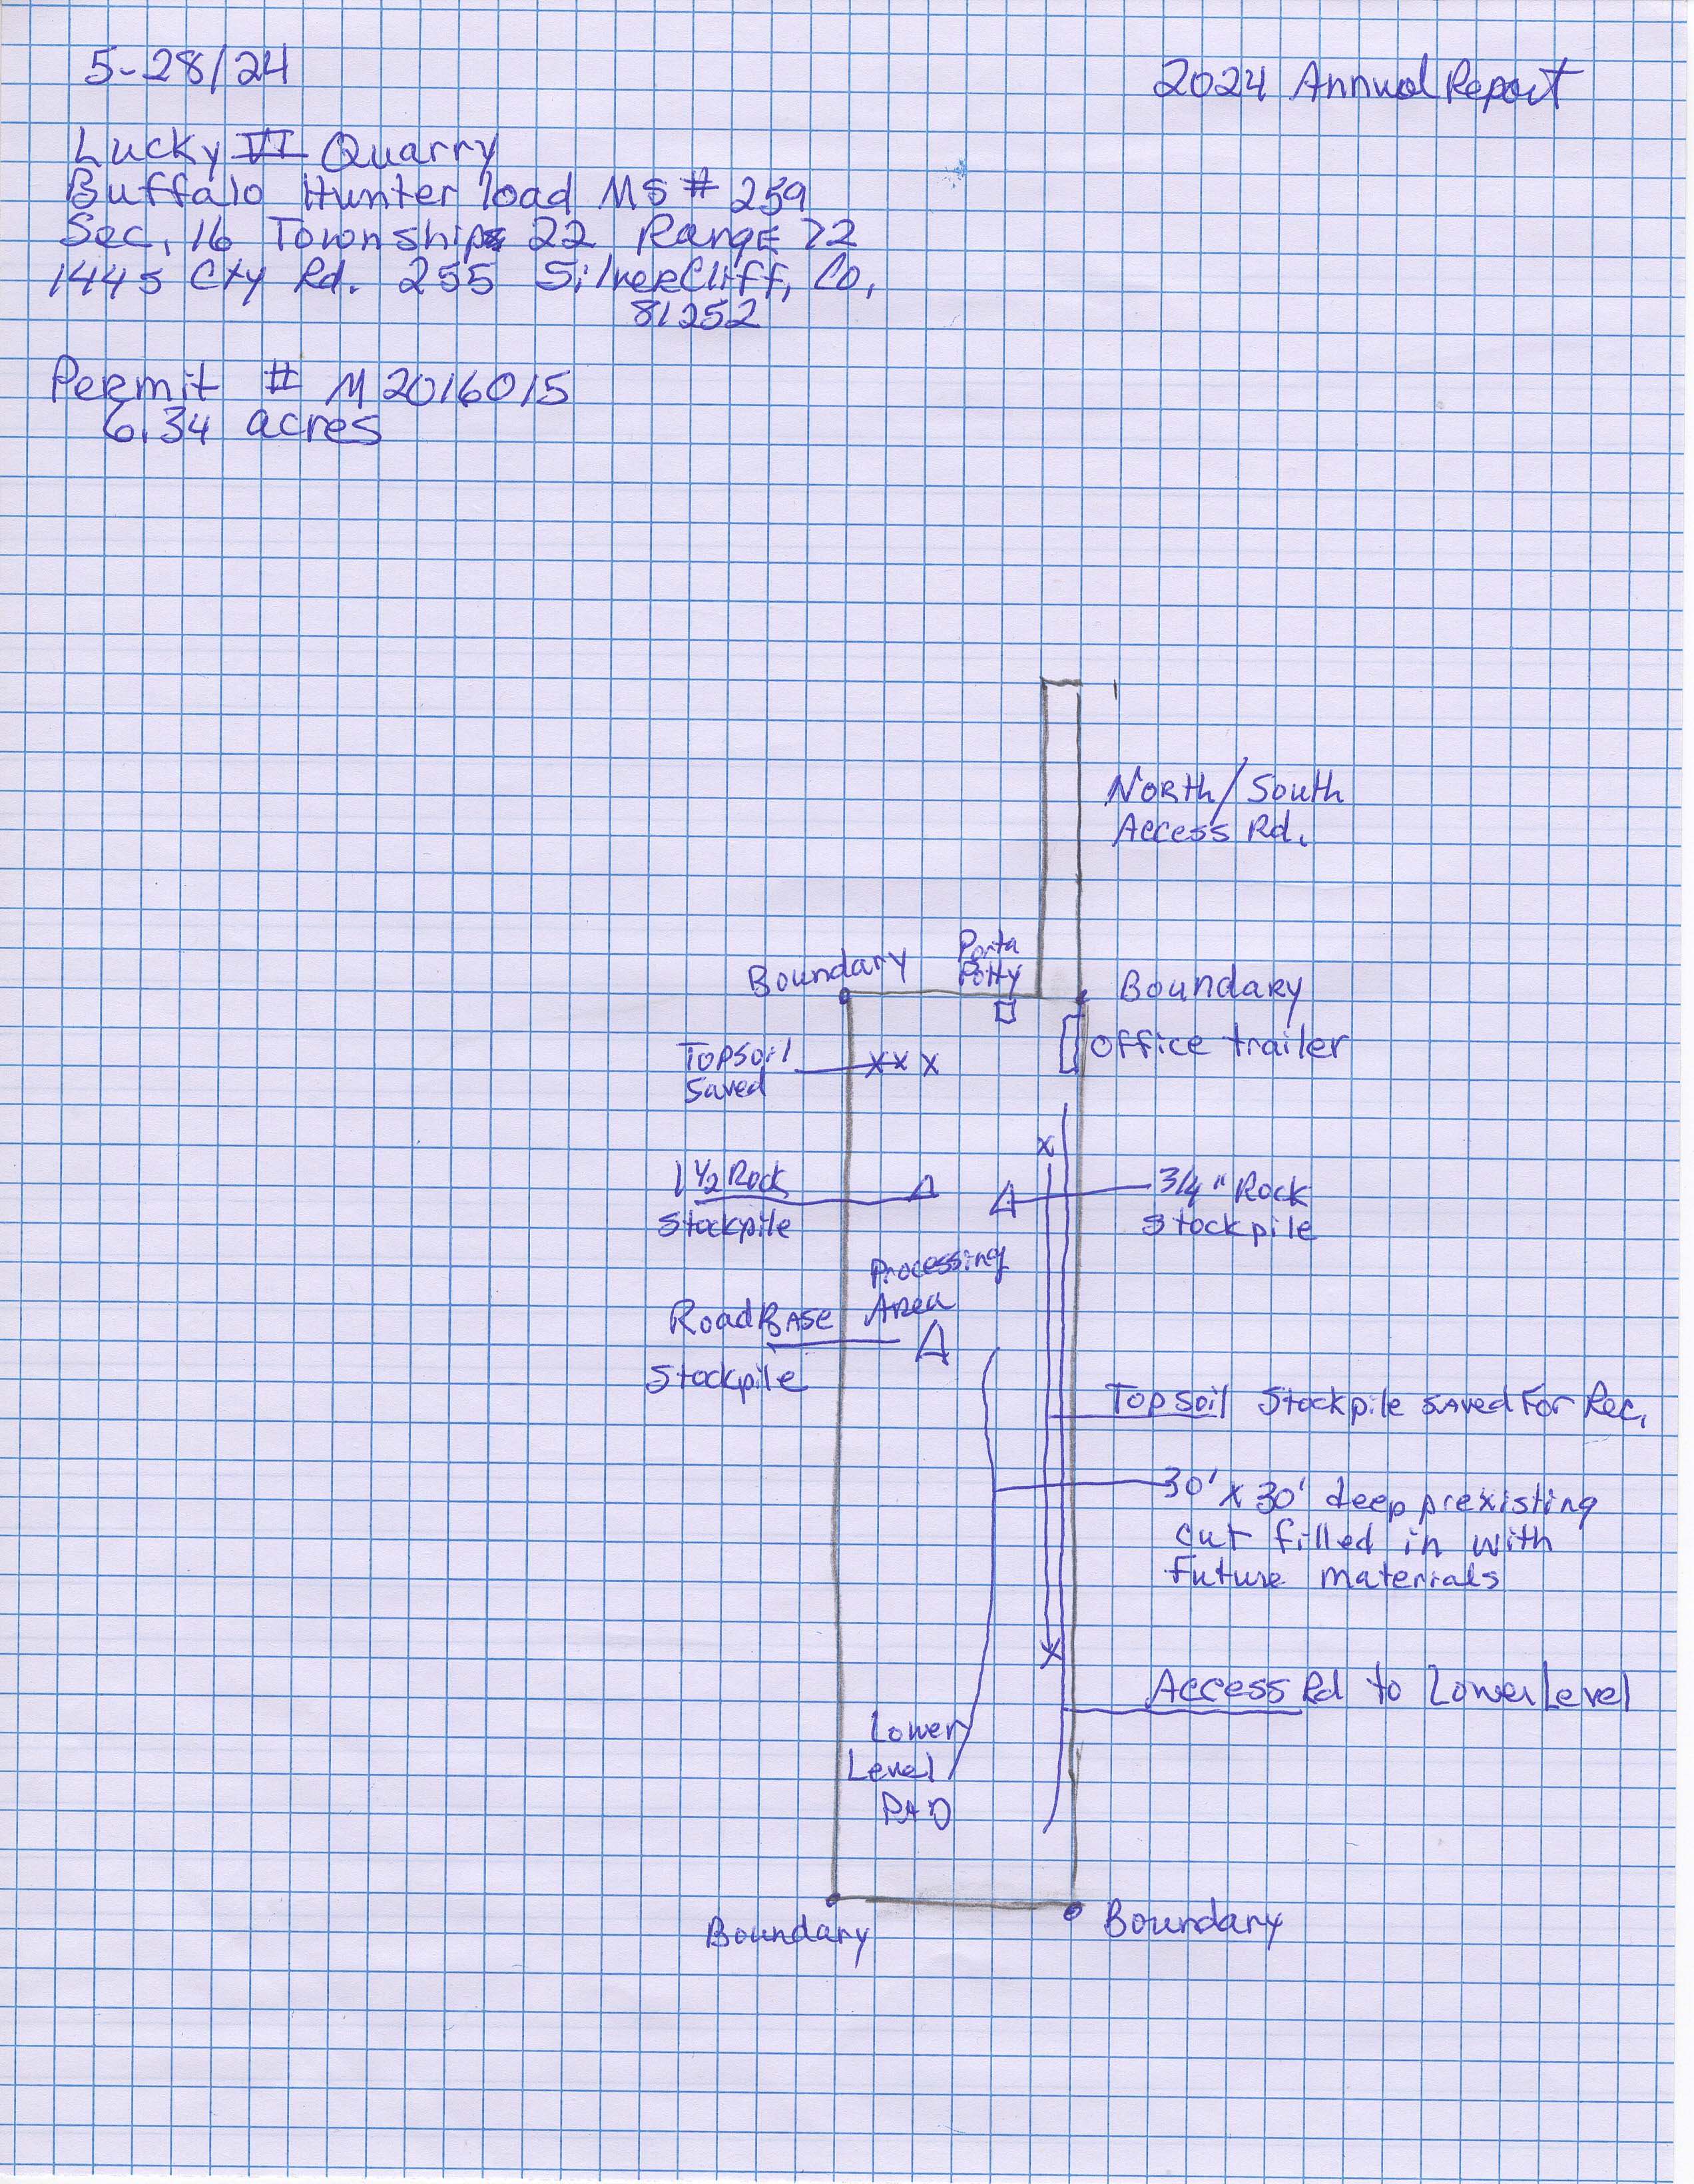 5-28/24
2024 Annual Report
Lucky VI Quarry
Buffalo Hunter load MS # 259
Sec. 16 Township 22 Range 72
1445 Cty Rd. 255 SilverCliff, Co,
81252
Permit # M2016015
6.34 acres
North/South
Access Rd.
Porta
Potty
Boundary
Boundary
office trailer
Topsoil
Saved
xxx
x
1 1/2 Rock
Stockpile
3/4" Rock
Stockpile
Processing
Area
RoadBase
Stockpile
Topsoil Stockpile Saved For Rec.
30' x 30' deep prexisting
cut filled in with
future materials
x
Access Rd to Lower Level
Lower
Level
PAD
Boundary
Boundary